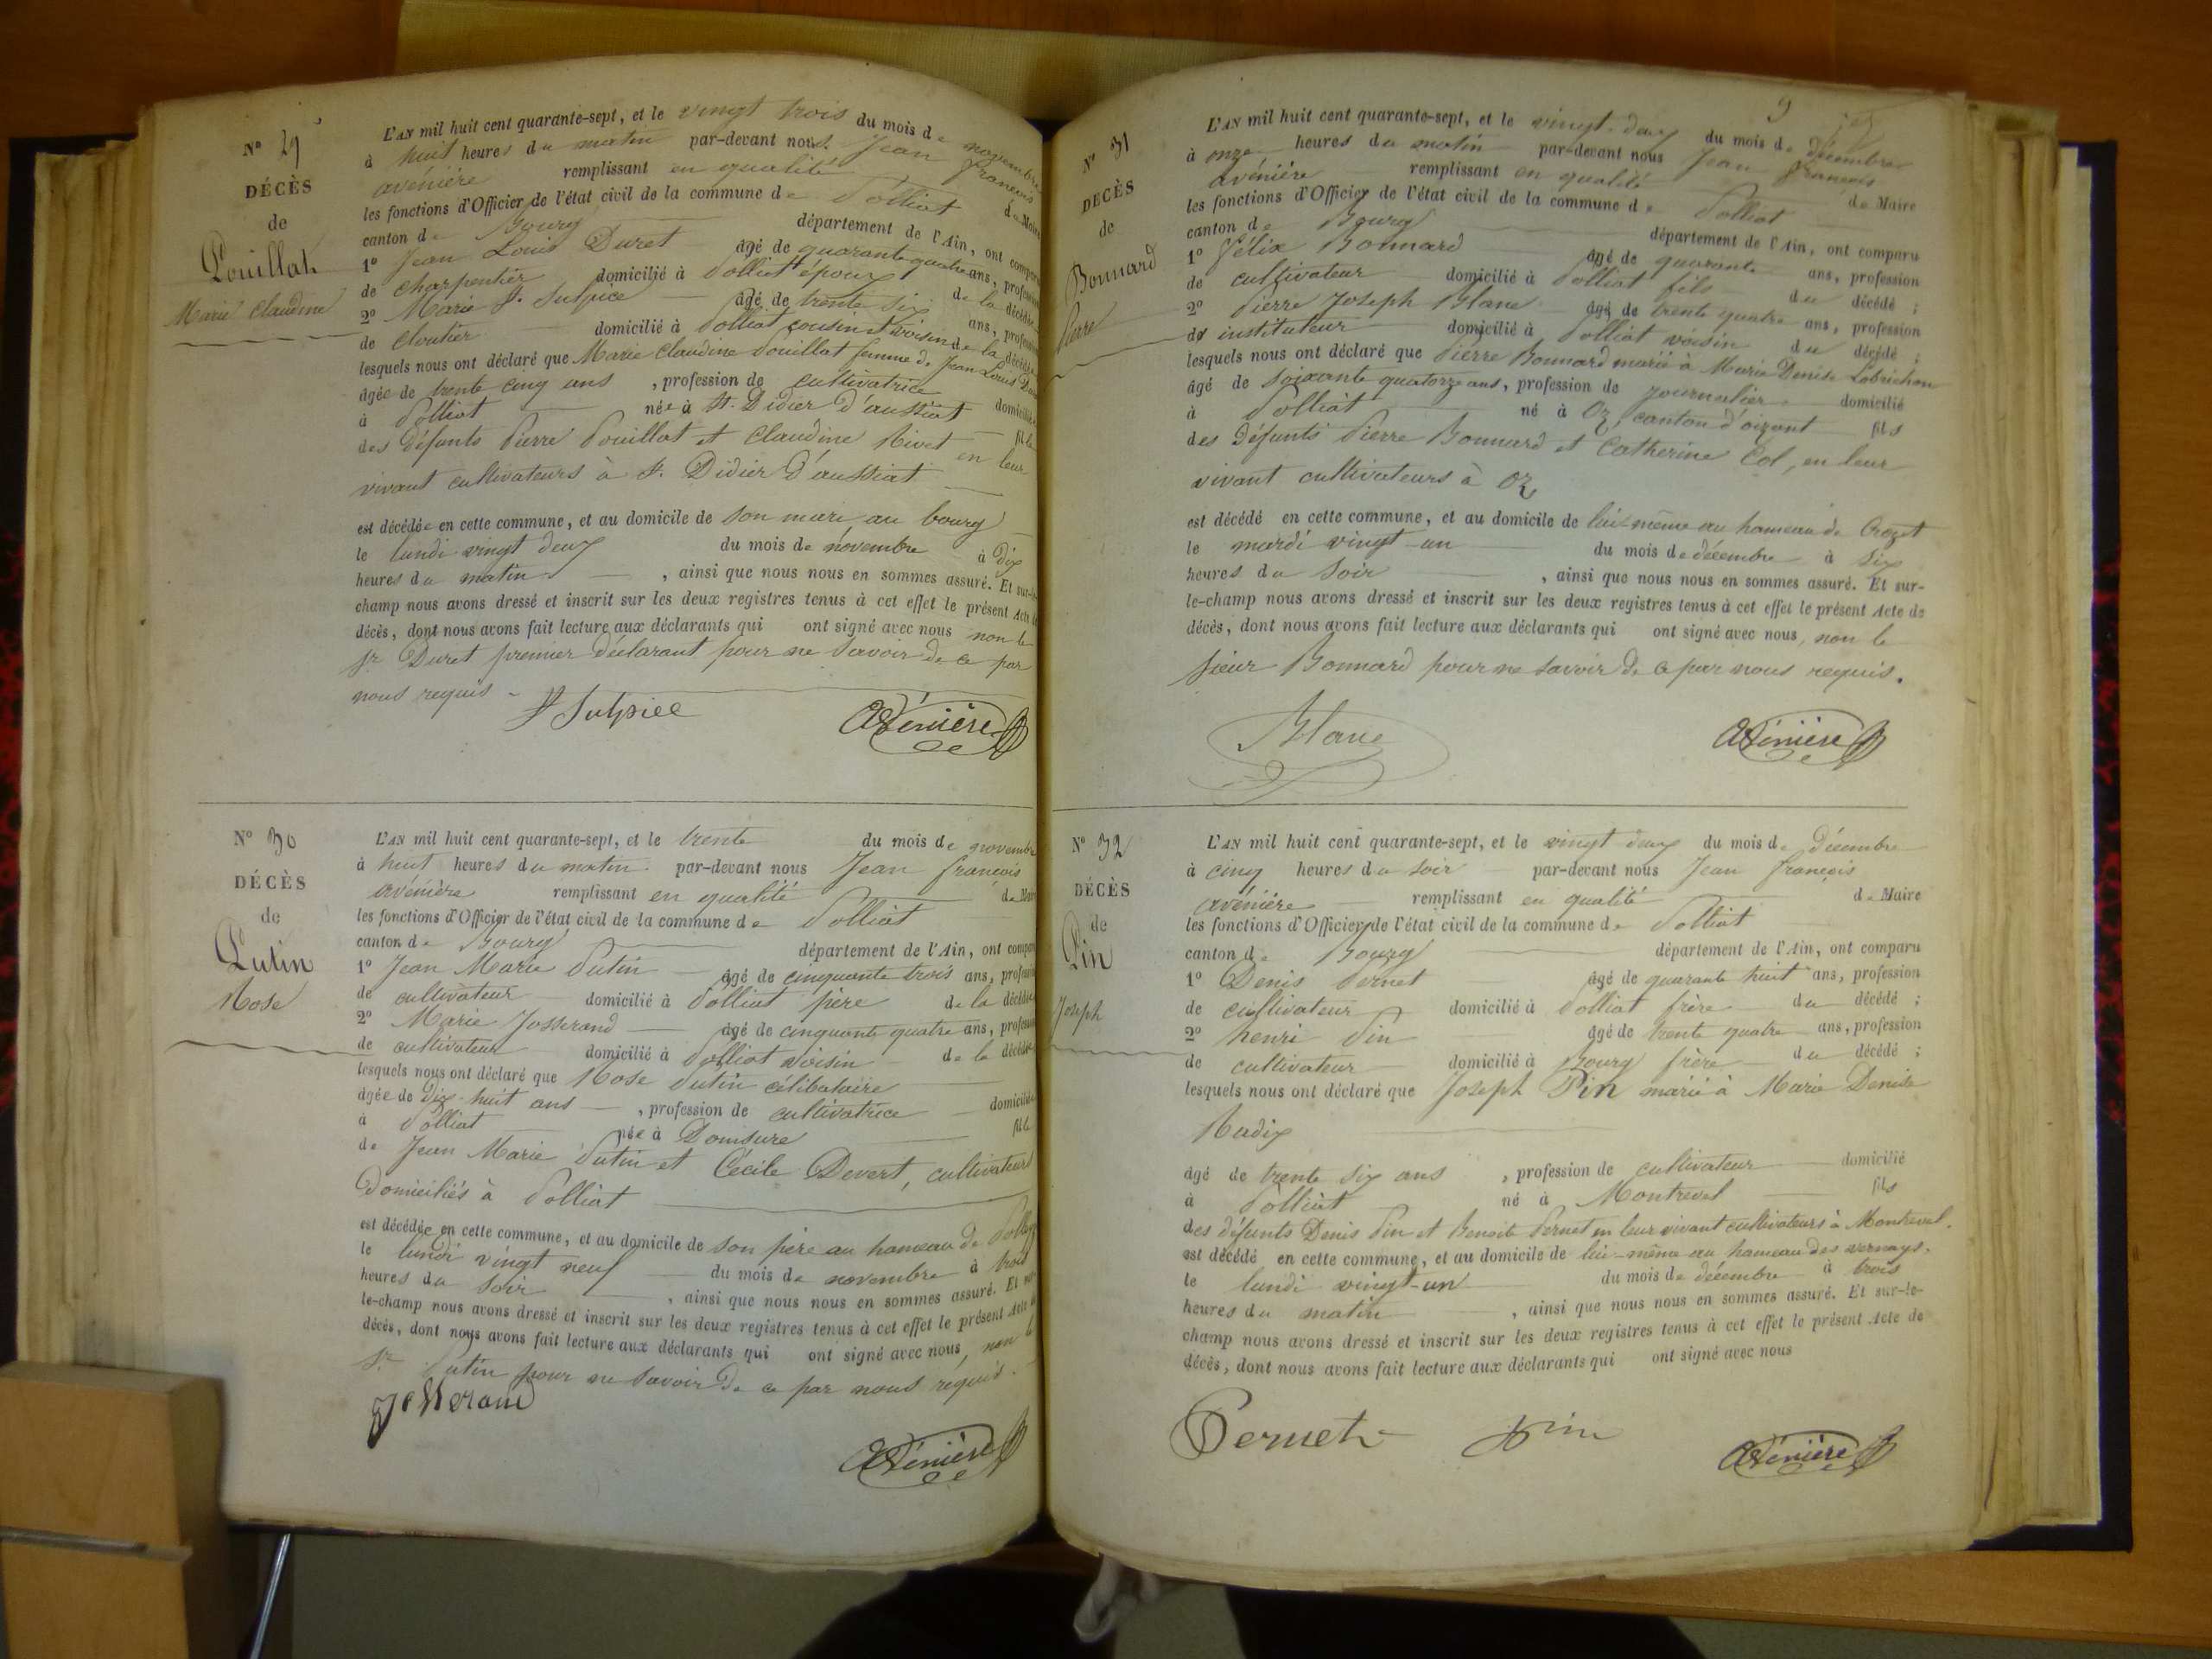 N° 29
DÉCÈS
de
Pouillat
Marie Claudine
L'AN mil huit cent quarante-sept, et le vingt trois du mois de novembre
à huit heures du matin par-devant nous Jean François
avénière remplissant en qualité de Maire
les fonctions d'Officier de l'état civil de la commune de Polliat
canton de Bourg département de l'Ain, ont comparu
1° Jean Louis Duret âgé de quarante quatre ans, profession
de charpentier domicilié à Polliat époux de la décédée
2° Marie J. Sulpice âgé de trente six ans, profession
de cloutier domicilié à Polliat cousin et voisin de la décédée
lesquels nous ont déclaré que Marie Claudine Pouillat femme de Jean Louis Duret
âgée de trente cinq ans , profession de cultivatrice domiciliée
à Polliat née à St. Didier d'aussiat fille
des défunts Pierre Pouillat et Claudine Nivet en leur
vivant cultivateurs à St. Didier d'aussiat
est décédée en cette commune, et au domicile de son mari au bourg
le lundi vingt deux du mois de novembre à dix
heures du matin , ainsi que nous nous en sommes assuré. Et sur-le-
champ nous avons dressé et inscrit sur les deux registres tenus à cet effet le présent Acte de
décès, dont nous avons fait lecture aux déclarants qui ont signé avec nous non le
sr Duret premier déclarant pour ne savoir de ce par
nous requis
Sulpice Avénière
N° 30
DÉCÈS
de
Putin
Rose
L'AN mil huit cent quarante-sept, et le trente du mois de novembre
à huit heures du matin par-devant nous Jean françois
avénière remplissant en qualité de Maire
les fonctions d'Officier de l'état civil de la commune de Polliat
canton de Bourg département de l'Ain, ont comparu
1° Jean Marie Putin âgé de cinquante trois ans, profession
de cultivateur domicilié à Polliat père de la décédée
2° Marie Josserand âgé de cinquante quatre ans, profession
de cultivateur domicilié à Polliat voisin de la décédée
lesquels nous ont déclaré que Rose Putin célibataire
âgée de dix-huit ans , profession de cultivatrice domiciliée
à Polliat née à Domsure fille
de Jean Marie Putin et Cécile Devert, cultivateurs
domiciliés à Polliat
est décédée en cette commune, et au domicile de son père au hameau de
le lundi vingt neuf du mois de novembre à trois
heures du soir , ainsi que nous nous en sommes assuré. Et sur-
le-champ nous avons dressé et inscrit sur les deux registres tenus à cet effet le présent Acte de
décès, dont nous avons fait lecture aux déclarants qui ont signé avec nous, non le
Sr Putin pour ne savoir de ce par nous requis.
Josserand
Avénière
9
N° 31
DÉCÈS
de
Bonnard
Pierre
L'AN mil huit cent quarante-sept, et le vingt-deux du mois de décembre
à onze heures du matin par-devant nous Jean françois
avénière remplissant en qualité de Maire
les fonctions d'Officier de l'état civil de la commune de Polliat
canton de Bourg département de l'Ain, ont comparu
1° Félix Bonnard âgé de quarante ans, profession
de cultivateur domicilié à Polliat fils du décédé ;
2° Pierre Joseph Blanc âgé de trente quatre ans, profession
d' instituteur domicilié à Polliat voisin du décédé ;
lesquels nous ont déclaré que Pierre Bonnard marié à Marie Denise Labrichon
âgé de soixante quatorze ans, profession de journalier domicilié
à Polliat né à Oz, canton d'oizant fils
des défunts Pierre Bonnard et Catherine Col, en leur
vivant cultivateurs à Oz
est décédé en cette commune, et au domicile de lui-même au hameau de Crozet
le mardi vingt-un du mois de décembre à six
heures du soir , ainsi que nous nous en sommes assuré. Et sur-
le-champ nous avons dressé et inscrit sur les deux registres tenus à cet effet le présent Acte de
décès, dont nous avons fait lecture aux déclarants qui ont signé avec nous, non le
sieur Bonnard pour ne savoir de ce par nous requis.
Blanc Avénière
N° 32
DÉCÈS
de
Pin
Joseph
L'AN mil huit cent quarante-sept, et le vingt-deux du mois de décembre
à cinq heures du soir par-devant nous Jean françois
avénière remplissant en qualité de Maire
les fonctions d'Officier de l'état civil de la commune de Polliat
canton de Bourg département de l'Ain, ont comparu
1° Denis Pernet âgé de quarante huit ans, profession
de cultivateur domicilié à Polliat frère du décédé ;
2° henri Pin âgé de trente quatre ans, profession
de cultivateur domicilié à Bourg frère du décédé ;
lesquels nous ont déclaré que Joseph Pin marié à Marie Denise
Nadix
âgé de trente six ans , profession de cultivateur domicilié
à Polliat né à Montrevel fils
des défunts Denis Pin et Benoite Pernet en leur vivant cultivateurs à Montrevel.
est décédé en cette commune, et au domicile de lui-même au hameau des vernays.
le lundi vingt-un du mois de décembre à trois
heures du matin , ainsi que nous nous en sommes assuré. Et sur-le-
champ nous avons dressé et inscrit sur les deux registres tenus à cet effet le présent Acte de
décès, dont nous avons fait lecture aux déclarants qui ont signé avec nous
Pernet Pin Avénière